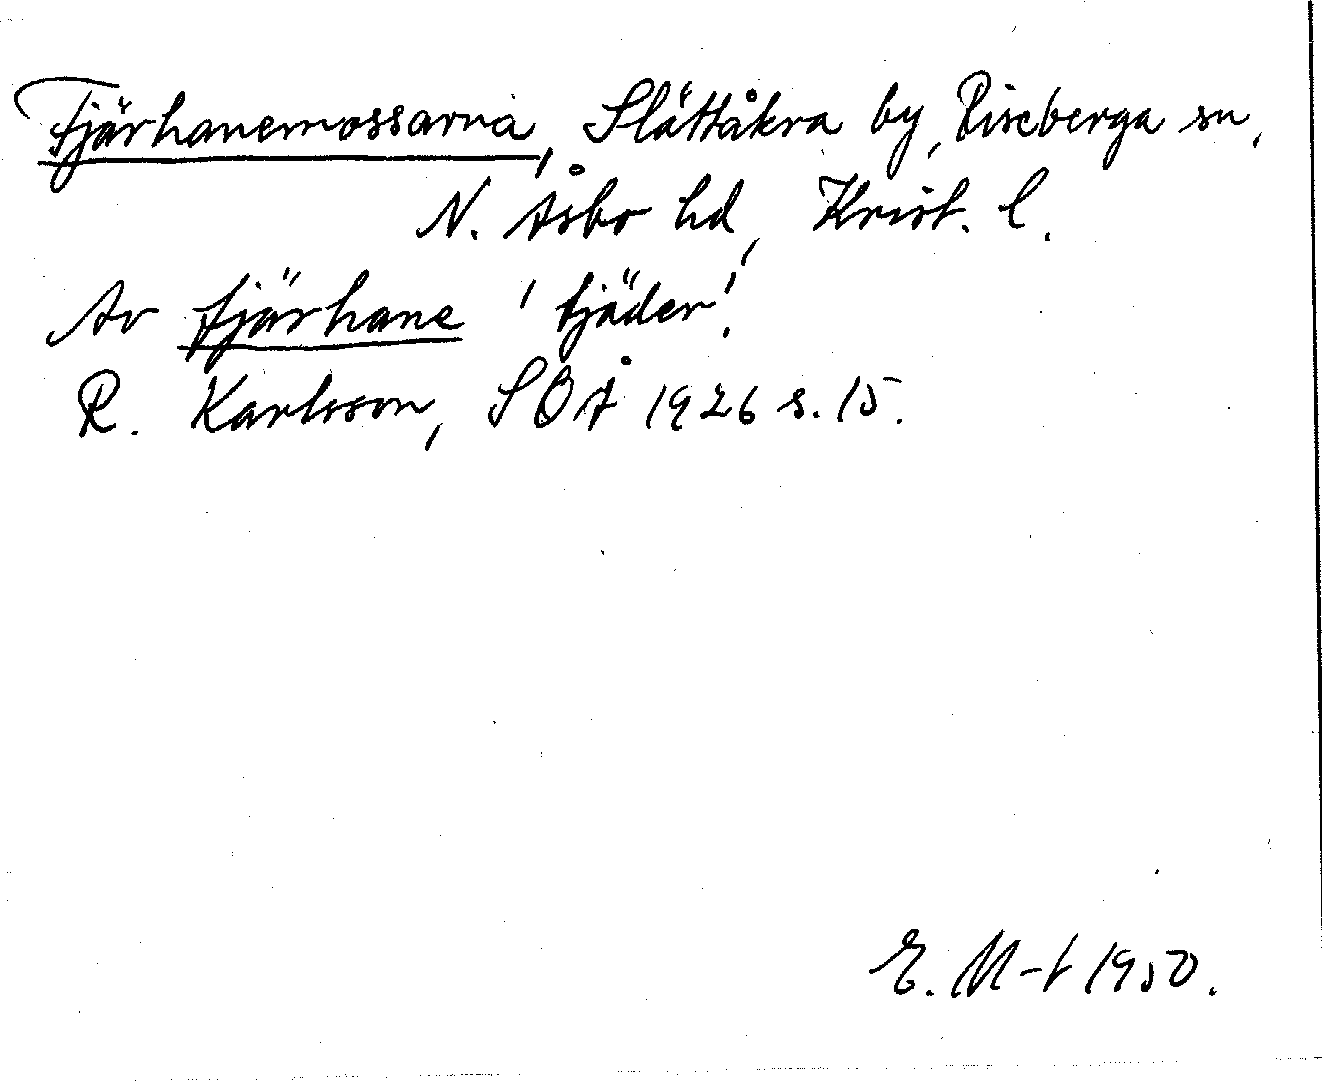 Fjärhanemossarna, Slättåkra by, Riseberga sn,
N. Åsbo hd, Krist. l.
Av fjärhane 'tjäder'.
R. Karlsson, SOÅ 1926 s. 15.
E. M-t 1950.